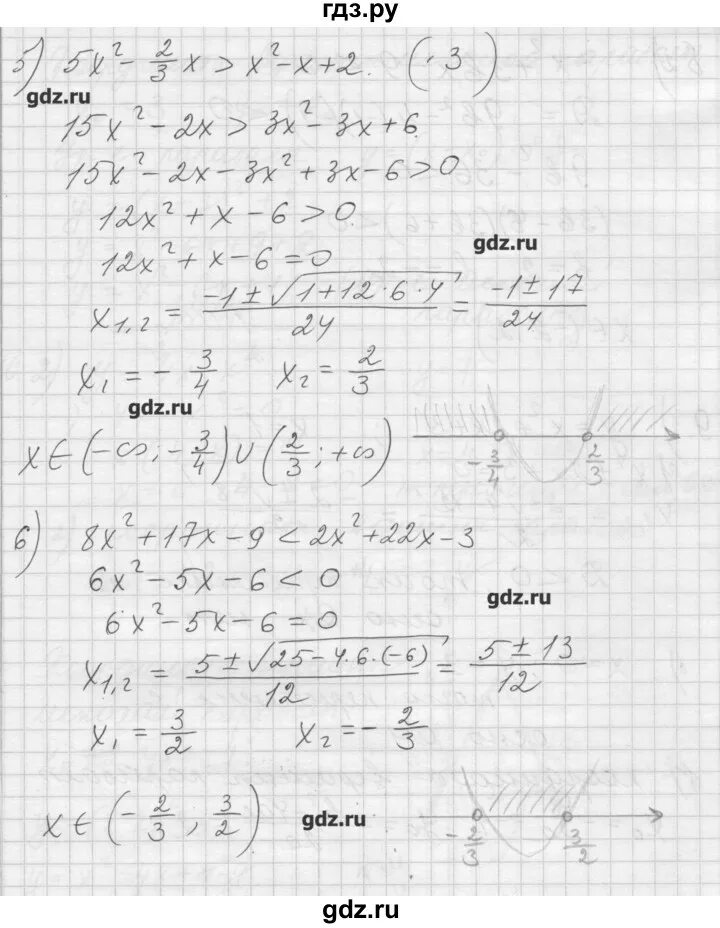 гдз.ру
5) 5x² - 2/3 x > x² - x + 2. (·3)
gdz.ru
15x² - 2x > 3x² - 3x + 6.
15x² - 2x - 3x² + 3x - 6 > 0
12x² + x - 6 > 0.
gdz.ru
12x² + x - 6 = 0
x₁,₂ = (-1 ± √(1 + 12·6·4))/24 = (-1 ± 17)/24
x₁ = - 3/4 x₂ = 2/3
gdz.ru
x ∈ (-∞; -3/4) ∪ (2/3; +∞)
-3/4 2/3
6) 8x² + 17x - 9 < 2x² + 22x - 3
6x² - 5x - 6 < 0
gdz.ru
6x² - 5x - 6 = 0
x₁,₂ = (5 ± √(25 - 4·6·(-6)))/12 = (5 ± 13)/12
x₁ = 3/2 x₂ = - 2/3
x ∈ (-2/3; 3/2)
gdz.ru
-2/3 3/2
gdz.ru